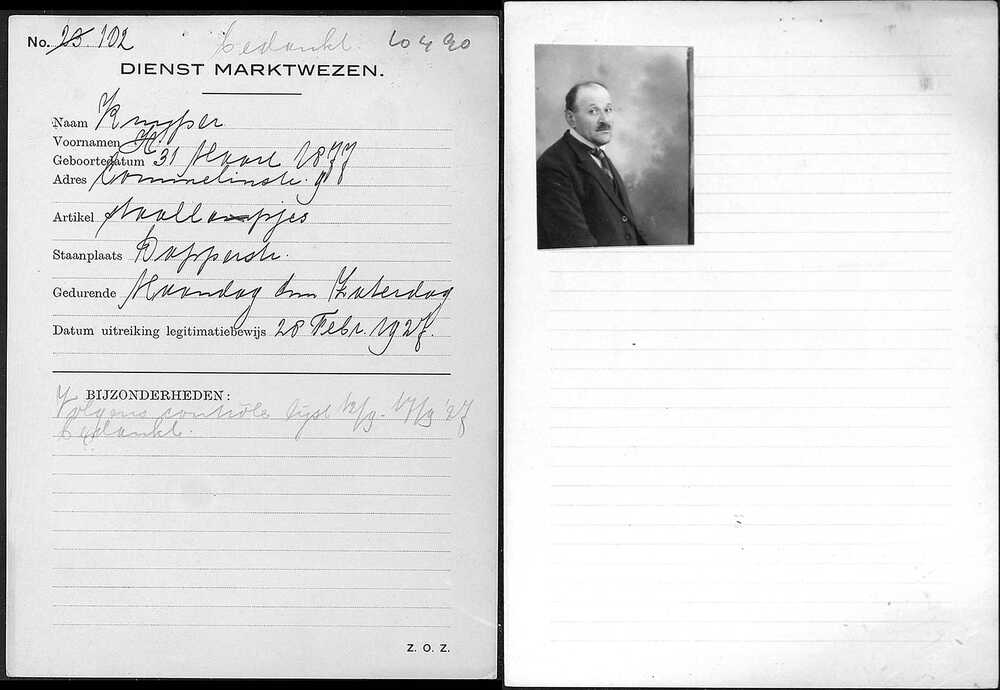 No. 23. 102 bedankt. 10 4 90
DIENST MARKTWEZEN.
Naam Knijper
Voornamen H.
Geboortedatum 31 Maart 1877
Adres Commelinstr. 98
Artikel
Staanplaats Dapperstr.
Gedurende Maandag t/m Zaterdag
Datum uitreiking legitimatiebewijs 28 Febr. 1927.
BIJZONDERHEDEN:
Volgens contrôle lijst 12/9 - 17/9 '27
bedankt.
Z. O. Z.